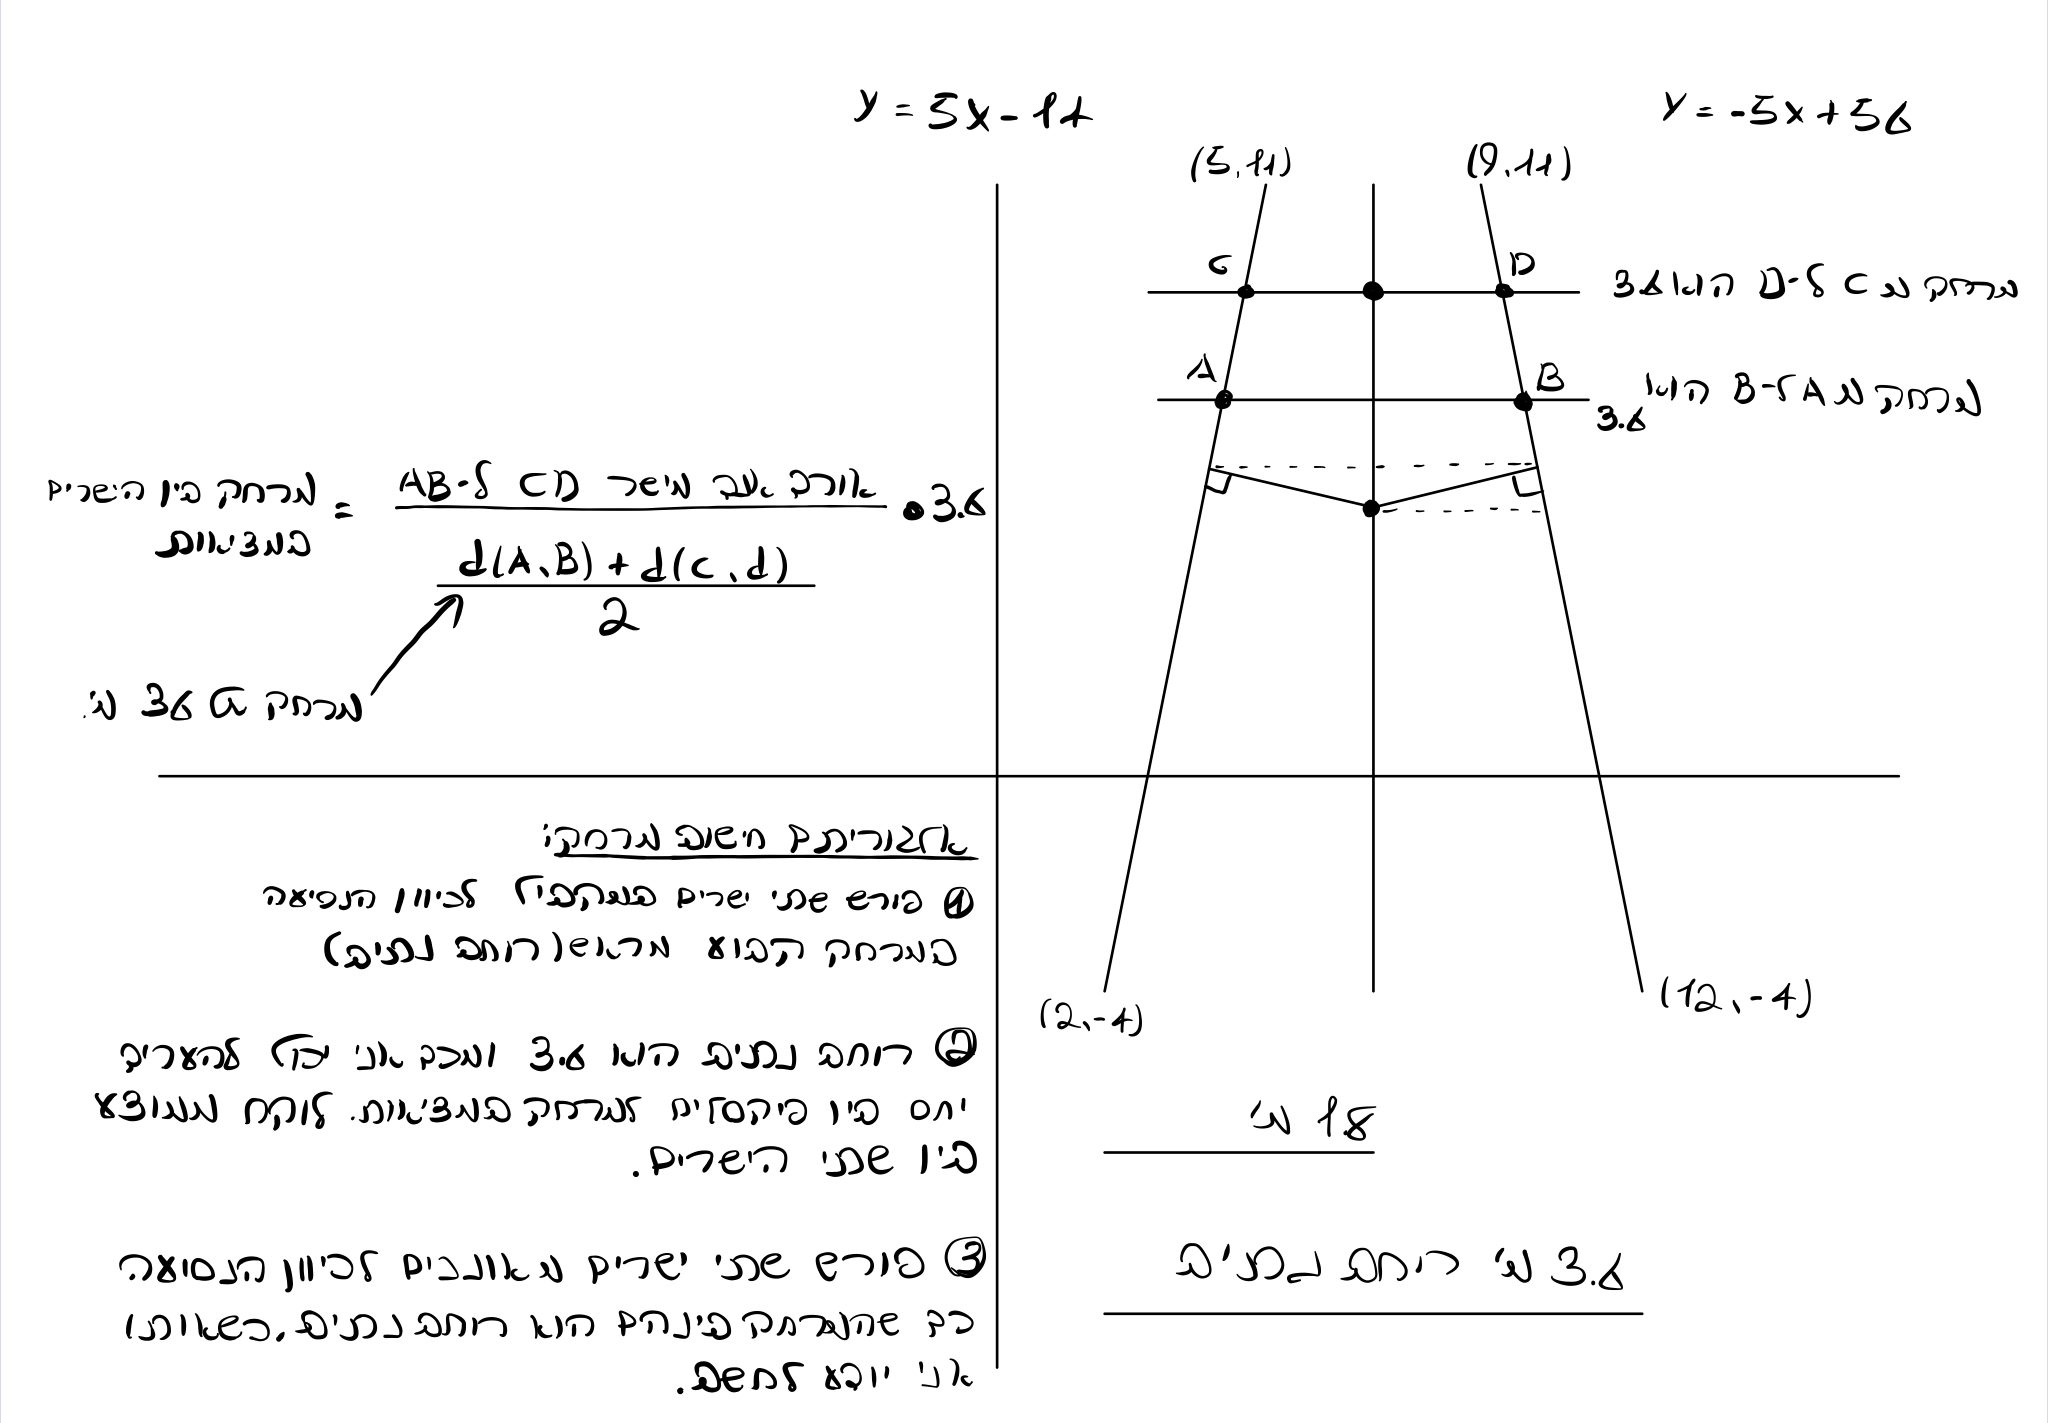 y = 5x - 14
y = -5x + 56
(5,11)
(9,11)
C
D
מרחק מ C ל-D הוא 3.6
A
B
מרחק מ A ל-B הוא
3.6
מרחק בין הישרים
במציאות
=
אורך אנכי מישר CD ל-AB
d(A,B) + d(c,d)
2
• 3.6
מרחק ט 36 מ׳.
אלגוריתם חישוב מרחק:
① פורש שתי ישרים במקביל לכיוון הנסיעה
במרחק קבוע מראש (רוחב נתיב)
② רוחב נתיב הוא 3.6 ומכך אני יכול להעריך
יחס בין פיקסלים למרחק במציאות. לוקח ממוצע
בין שתי הישרים.
③ פורש שתי ישרים מאונכים לכיוון הנסיעה
כך שהמרחק ביניהם הוא רוחב נתיב, כשאותו
אני יודע לחשב.
(2,-4)
(12,-4)
1.8 מ׳
3.6 מ׳ רוחב נתיב